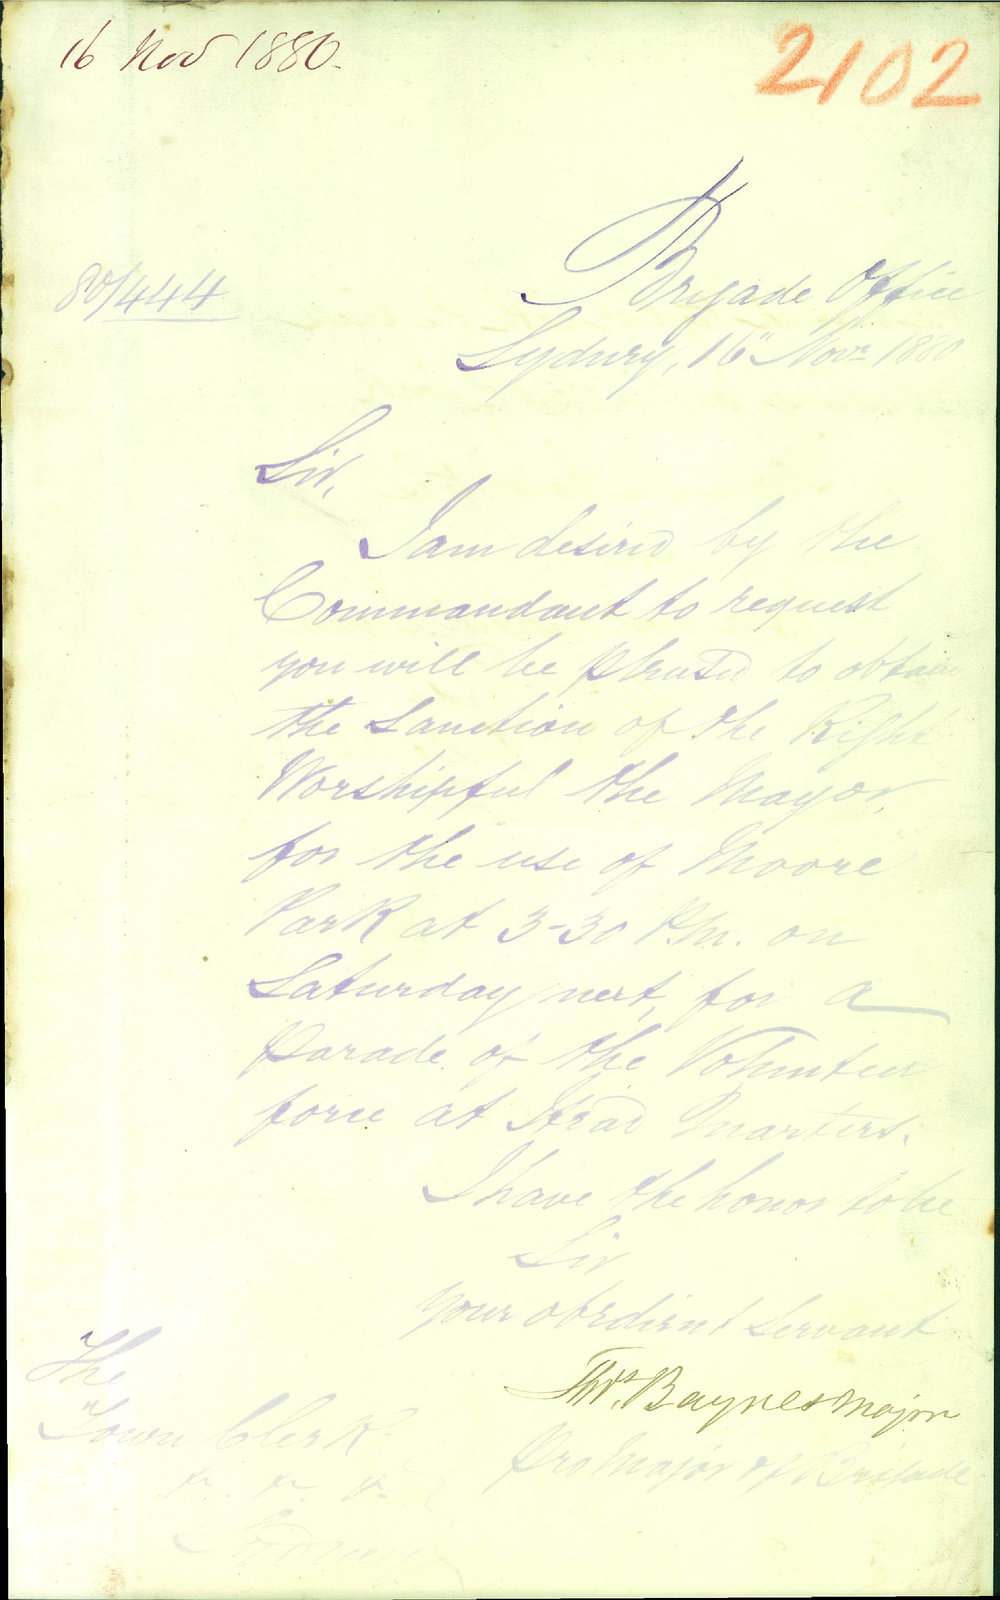 16 Nov 1880.
2102
80/444
Brigade Office
Sydney, 16" Novr 1880
Sir,
I am desired by the
Commandant to request
you will be pleased to obtain
the Sanction of the Right
Worshipful the Mayor,
for the use of Moore
Park at 3-30 P.m. on
Saturday next, for a
Parade of the Volunteer
force at Head Quarters.
I have the honor to be
Sir
your obedient Servant
Thos. Baynes Major
Pro Major of Brigade
The
Town Clerk
&c. &c. &c.
Sydney